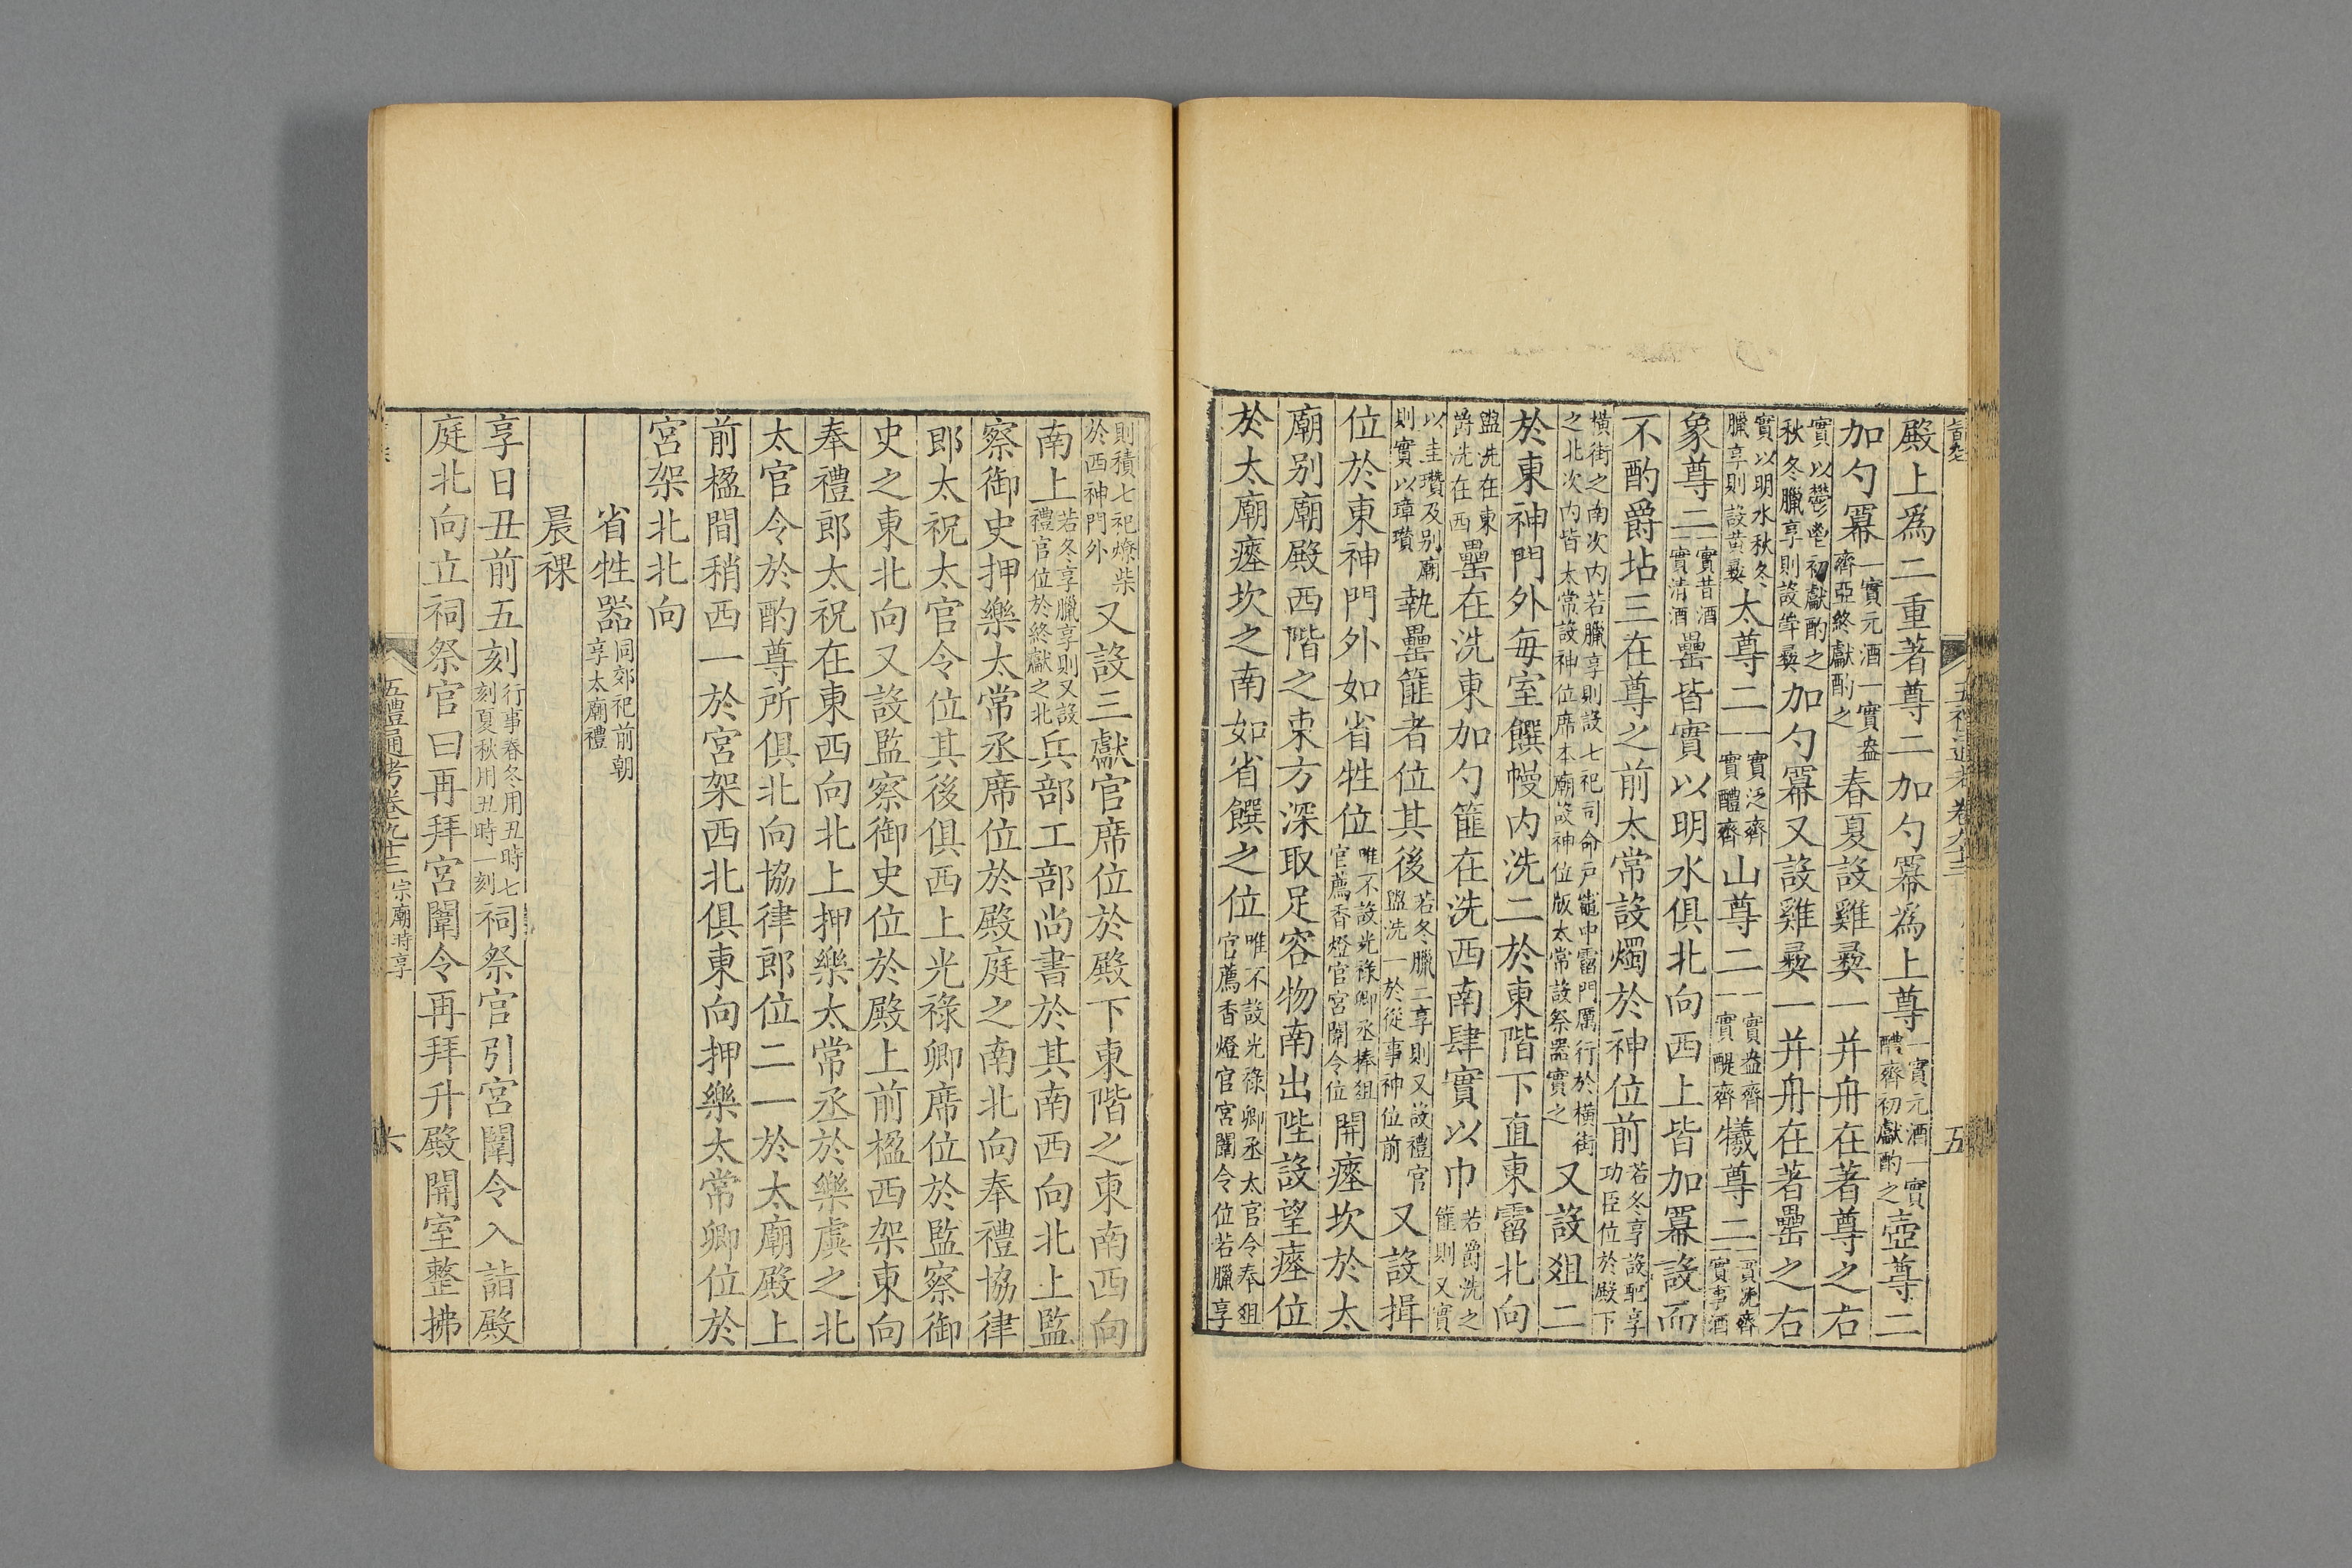 殿上爲二重著尊二加勺羃爲上尊一實元酒一實醴齊初獻酌之壺尊二
加勺羃一實元酒一實盎齊亞終獻酌之春夏設雞彝一并舟在著尊之右
實以鬱鬯初獻酌之秋冬臘享則設斝彝加勺羃又設雞彝一并舟在著罍之右
實以明水秋冬臘享則設黃彝太尊二一實泛齊一實醴齊山尊二一實盎齊一實醍齊犧尊二一實沈齊一實事酒
象尊二一實昔酒一實清酒罍皆實以明水俱北向西上皆加羃設而
不酌爵坫三在尊之前太常設燭於神位前若冬享設配享功臣位於殿下
橫街之南次內若臘享則設七祀司命戶竈中霤門厲行於橫街之北次內皆太常設神位席本廟設神位版太常設祭器實之又設俎二
於東神門外每室饌幔內洗二於東階下直東霤北向
盥洗在東爵洗在西罍在洗東加勺篚在洗西南肆實以巾若爵洗之篚則又實
以圭瓚及别廟則實以璋瓚執罍篚者位其後若冬臘二享則又設禮官盥洗一於從事神位前又設揖
位於東神門外如省牲位唯不設光祿卿丞捧俎官薦香燈官宮闈令位開瘞坎於太
廟别廟殿西階之東方深取足容物南出陛設望瘞位
於太廟瘞坎之南如省饌之位唯不設光祿卿丞太官令奉俎官薦香燈官宮闈令位若臘享
五禮通考卷九十三
五
則積七祀燎柴於西神門外又設三獻官席位於殿下東階之東南西向
南上若冬享臘享則又設禮官位於終獻之北兵部工部尚書於其南西向北上監
察御史押樂太常丞席位於殿庭之南北向奉禮協律
郎太祝太官令位其後俱西上光祿卿席位於監察御
史之東北向又設監察御史位於殿上前楹西架東向
奉禮郎太祝在東西向北上押樂太常丞於樂虡之北
太官令於酌尊所俱北向協律郎位二一於太廟殿上
前楹間稍西一於宮架西北俱東向押樂太常卿位於
宮架北北向
省牲器同郊祀前朝享太廟禮
晨祼
享日丑前五刻行事春冬用丑時七刻夏秋用丑時一刻祠祭官引宮闈令入詣殿
庭北向立祠祭官曰再拜宮闈令再拜升殿開室整拂
五禮通考卷九十三 宗廟時享
六